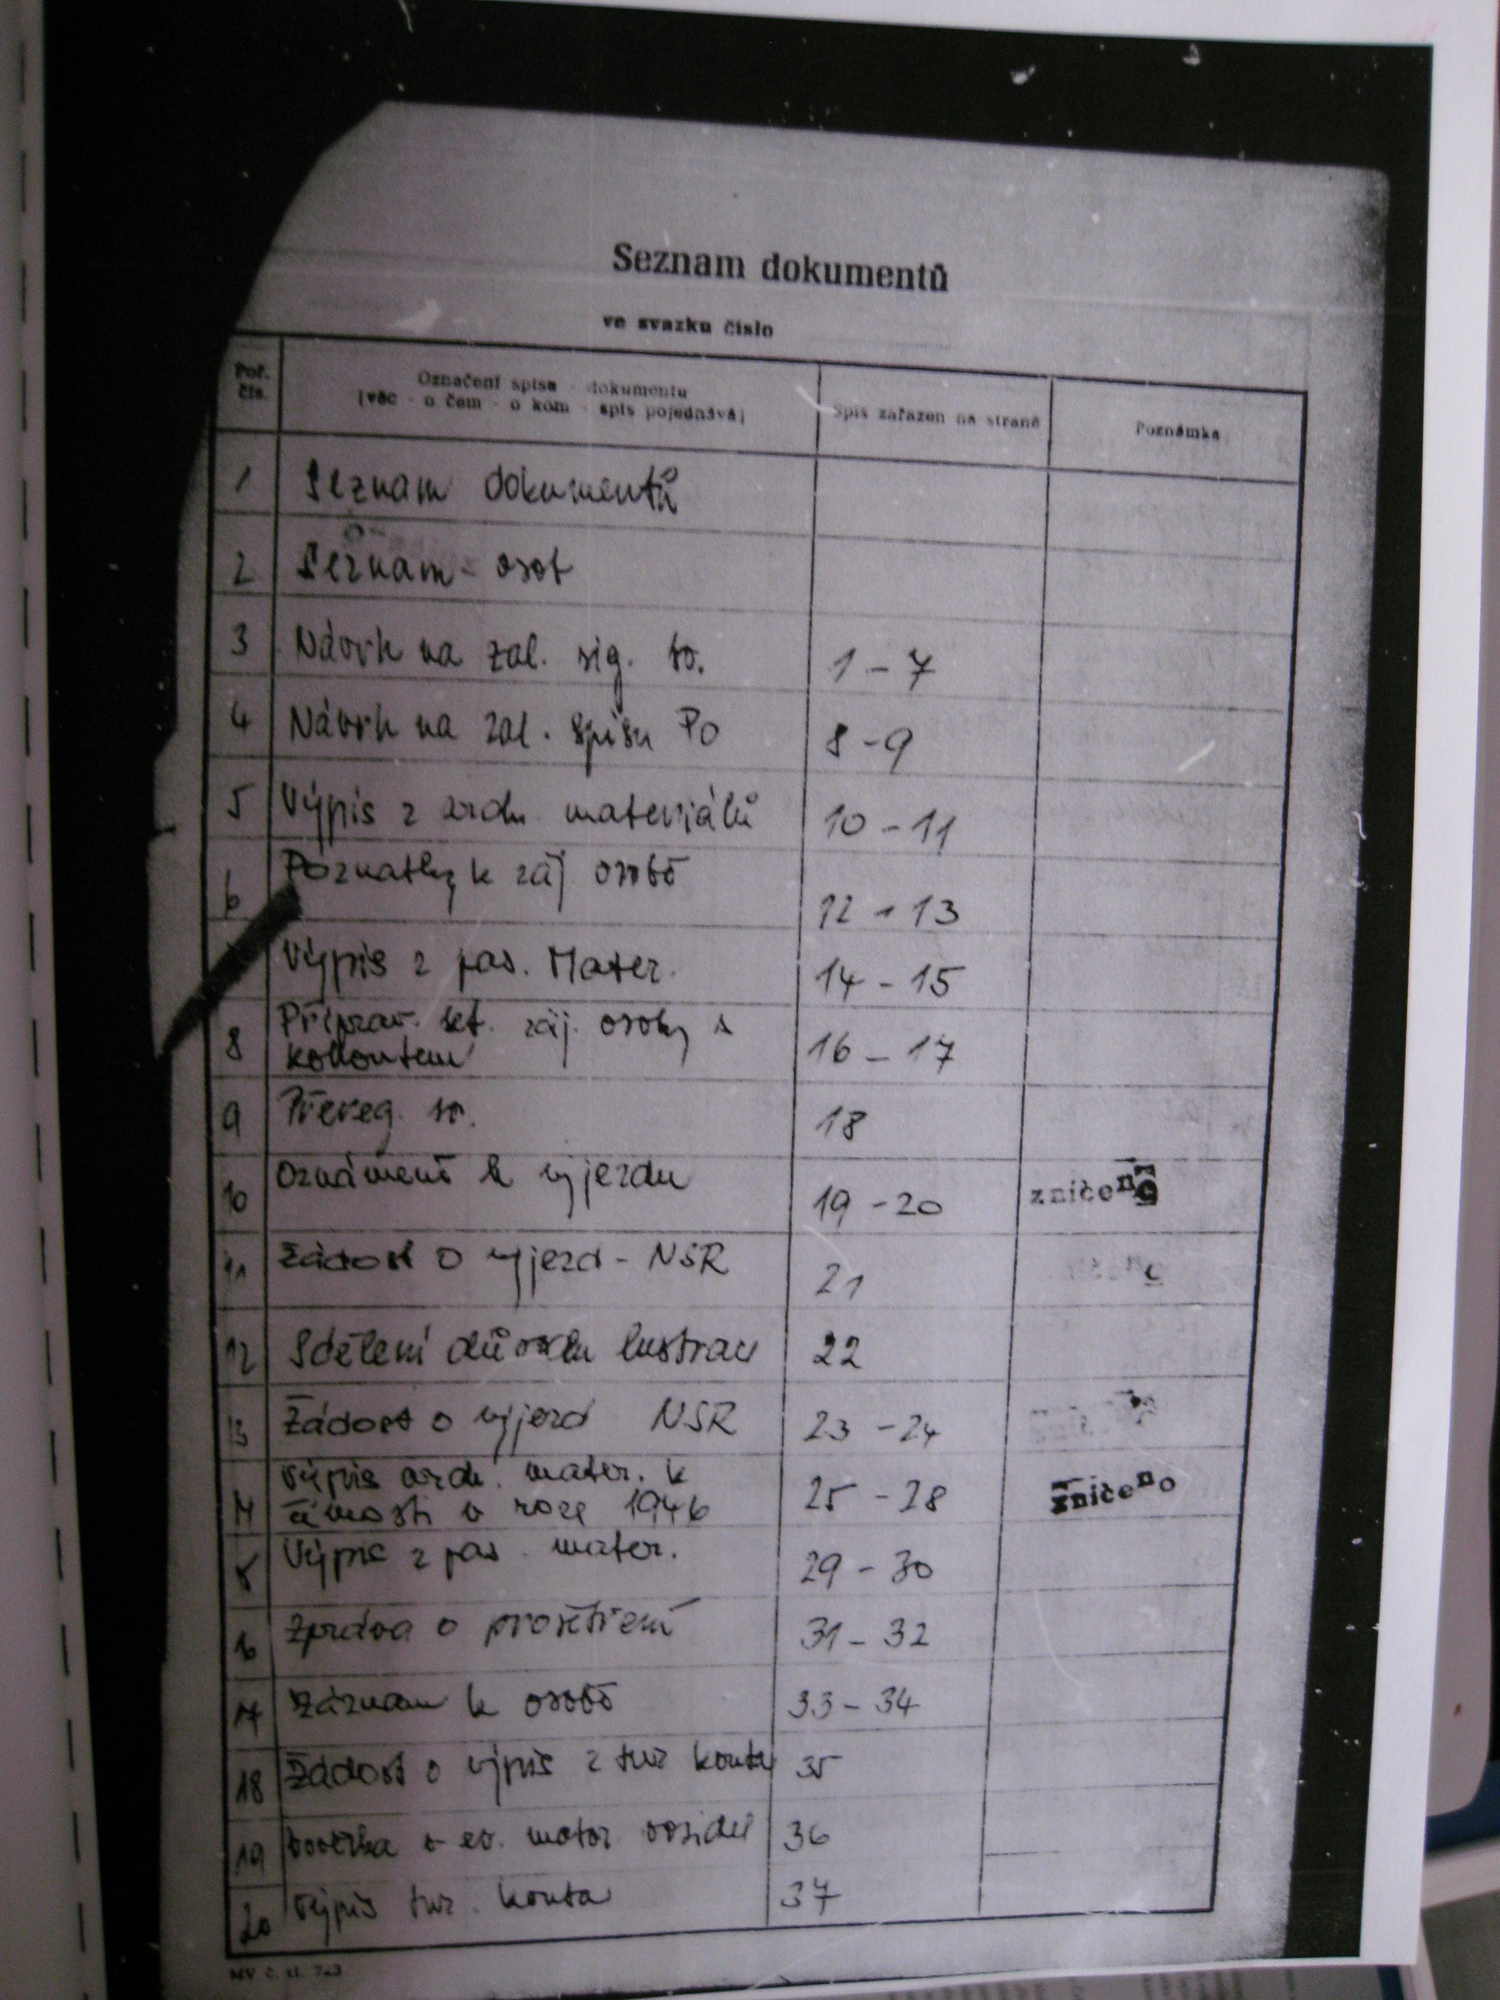 Seznam dokumentů
ve svazku číslo
Poř. čís.
Označení spisu - dokumentu
(věc - o čem - o kom - spis pojednává)
Spis zařazen na straně
Poznámka
1 Seznam dokumentů
2 Seznam osob
3 Návrh na zal. sig. sv. 1 - 7
4 Návrh na zal. spisu PO 8 - 9
5 Výpis z arch. materiálů 10 - 11
6 Poznatky k záj osobě 12 - 13
Výpis z pas. Mater. 14 - 15
8 Příprav. set. záj. osoby s
kohoutem 16 - 17
9 Přereg. sv. 18
10 Oznámení k výjezdu 19 - 20 zničeno
11 Žádost o výjezd - NSR 21
12 Sdělení důvodu lustrací 22
13 Žádost o výjezd NSR 23 - 24
14 Výpis arch. mater. k
činosti v roce 1946 25 - 28 zničeno
15 Výpis z pas. mater. 29 - 30
16 Zpráva o prošetření 31 - 32
17 Záznam k osobě 33 - 34
18 Žádost o výpis z tuz konta 35
19 v ev. motor vozidel 36
20 Výpis tuz. konta 37
MV č. sl. 723